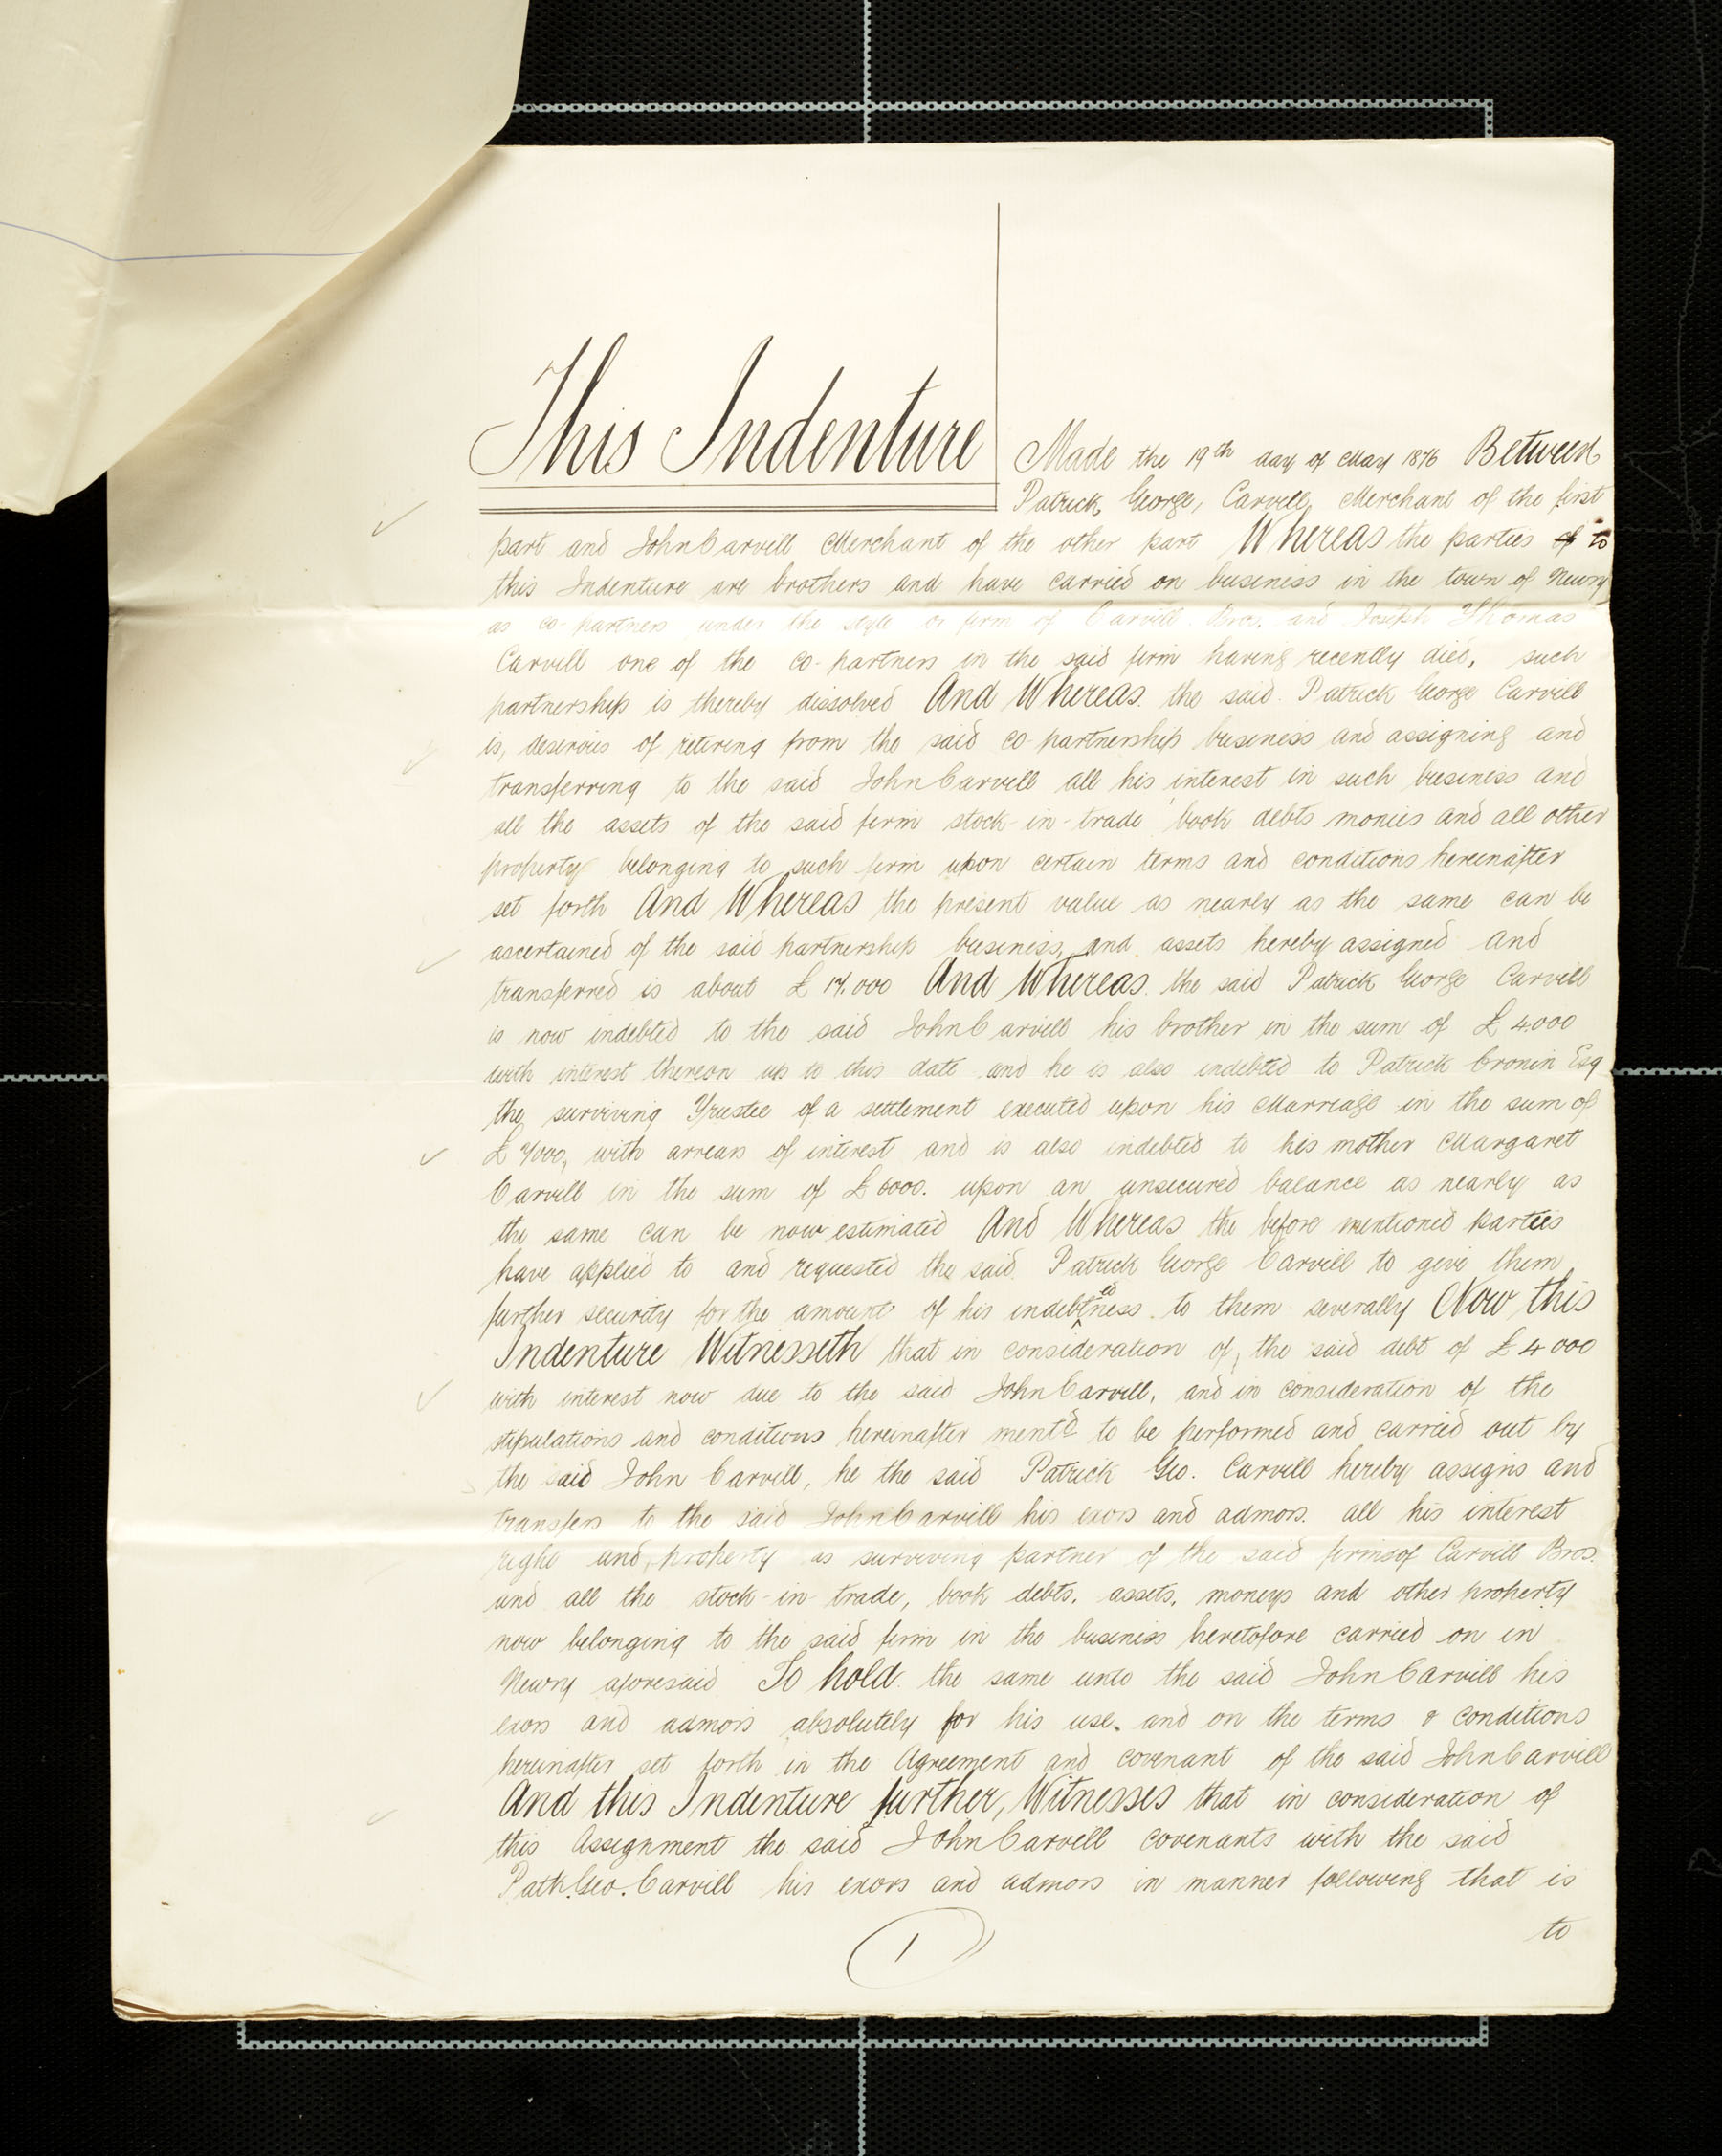 This Indenture Made the 19th day of May 1876 Between
Patrick George Carvill Merchant of the first
part and John Carvill Merchant of the other part Whereas the parties of to
this Indenture are brothers and have carried on business in the town of Newry
as co-partners under the style or firm of Carvill Bros. and Joseph Thomas
Carvill one of the co-partners in the said firm having recently died, such
partnership is thereby dissolved And Whereas the said Patrick George Carvill
is, deserous of retiring from the said co-partnership business and assigning and
transferring to the said John Carvill all his interest in such business and
all the assets of the said firm stock-in-trade book debts monies and all other
property belonging to such firm upon certain terms and conditions hereinafter
set forth And Whereas the present value as nearly as the same can be
ascertained of the said partnership business, and assets hereby assigned and
transferred is about £ 17.000 And Whereas the said Patrick George Carvill
is now indebted to the said John Carvill his brother in the sum of £ 4.000
with interest thereon up to this date and he is also indebted to Patrick Cronin Esq
the surviving Trustee of a settlement executed upon his Marriage in the sum of
£ 7000, with arrears of interest and is also indebted to his mother Margaret
Carvill in the sum of £ 6000. upon an unsecured balance as nearly as
the same can be now estimated And Whereas the before mentioned parties
have applied to and requested the said Patrick George Carvill to give them
further security for the amount of his indebtedness to them severally Now this
Indenture Witnesseth that in consideration of, the said debt of £ 4000
with interest now due to the said John Carvill, and in consideration of the
stipulations and conditions hereinafter mentd to be performed and carried out by
the said John Carvill, he the said Patrick Geo. Carvill hereby assigns and
transfers to the said John Carvill his exors and admors. all his interest
right and property as surviving partner of the said firm of Carvill Bros.
and all the stock-in-trade, book debts, assets, moneys and other property
now belonging to the said firm in the business heretofore carried on in
Newry aforesaid To hold the same unto the said John Carvill his
exors and admors absolutely for his use. and on the terms & conditions
hereinafter set forth in the Agreement and covenant of the said John Carvill
And this Indenture further, Witnesses that in consideration of
this Assignment the said John Carvill covenants with the said
Patk. Geo. Carvill his exors and admors in manner following that is
to
1